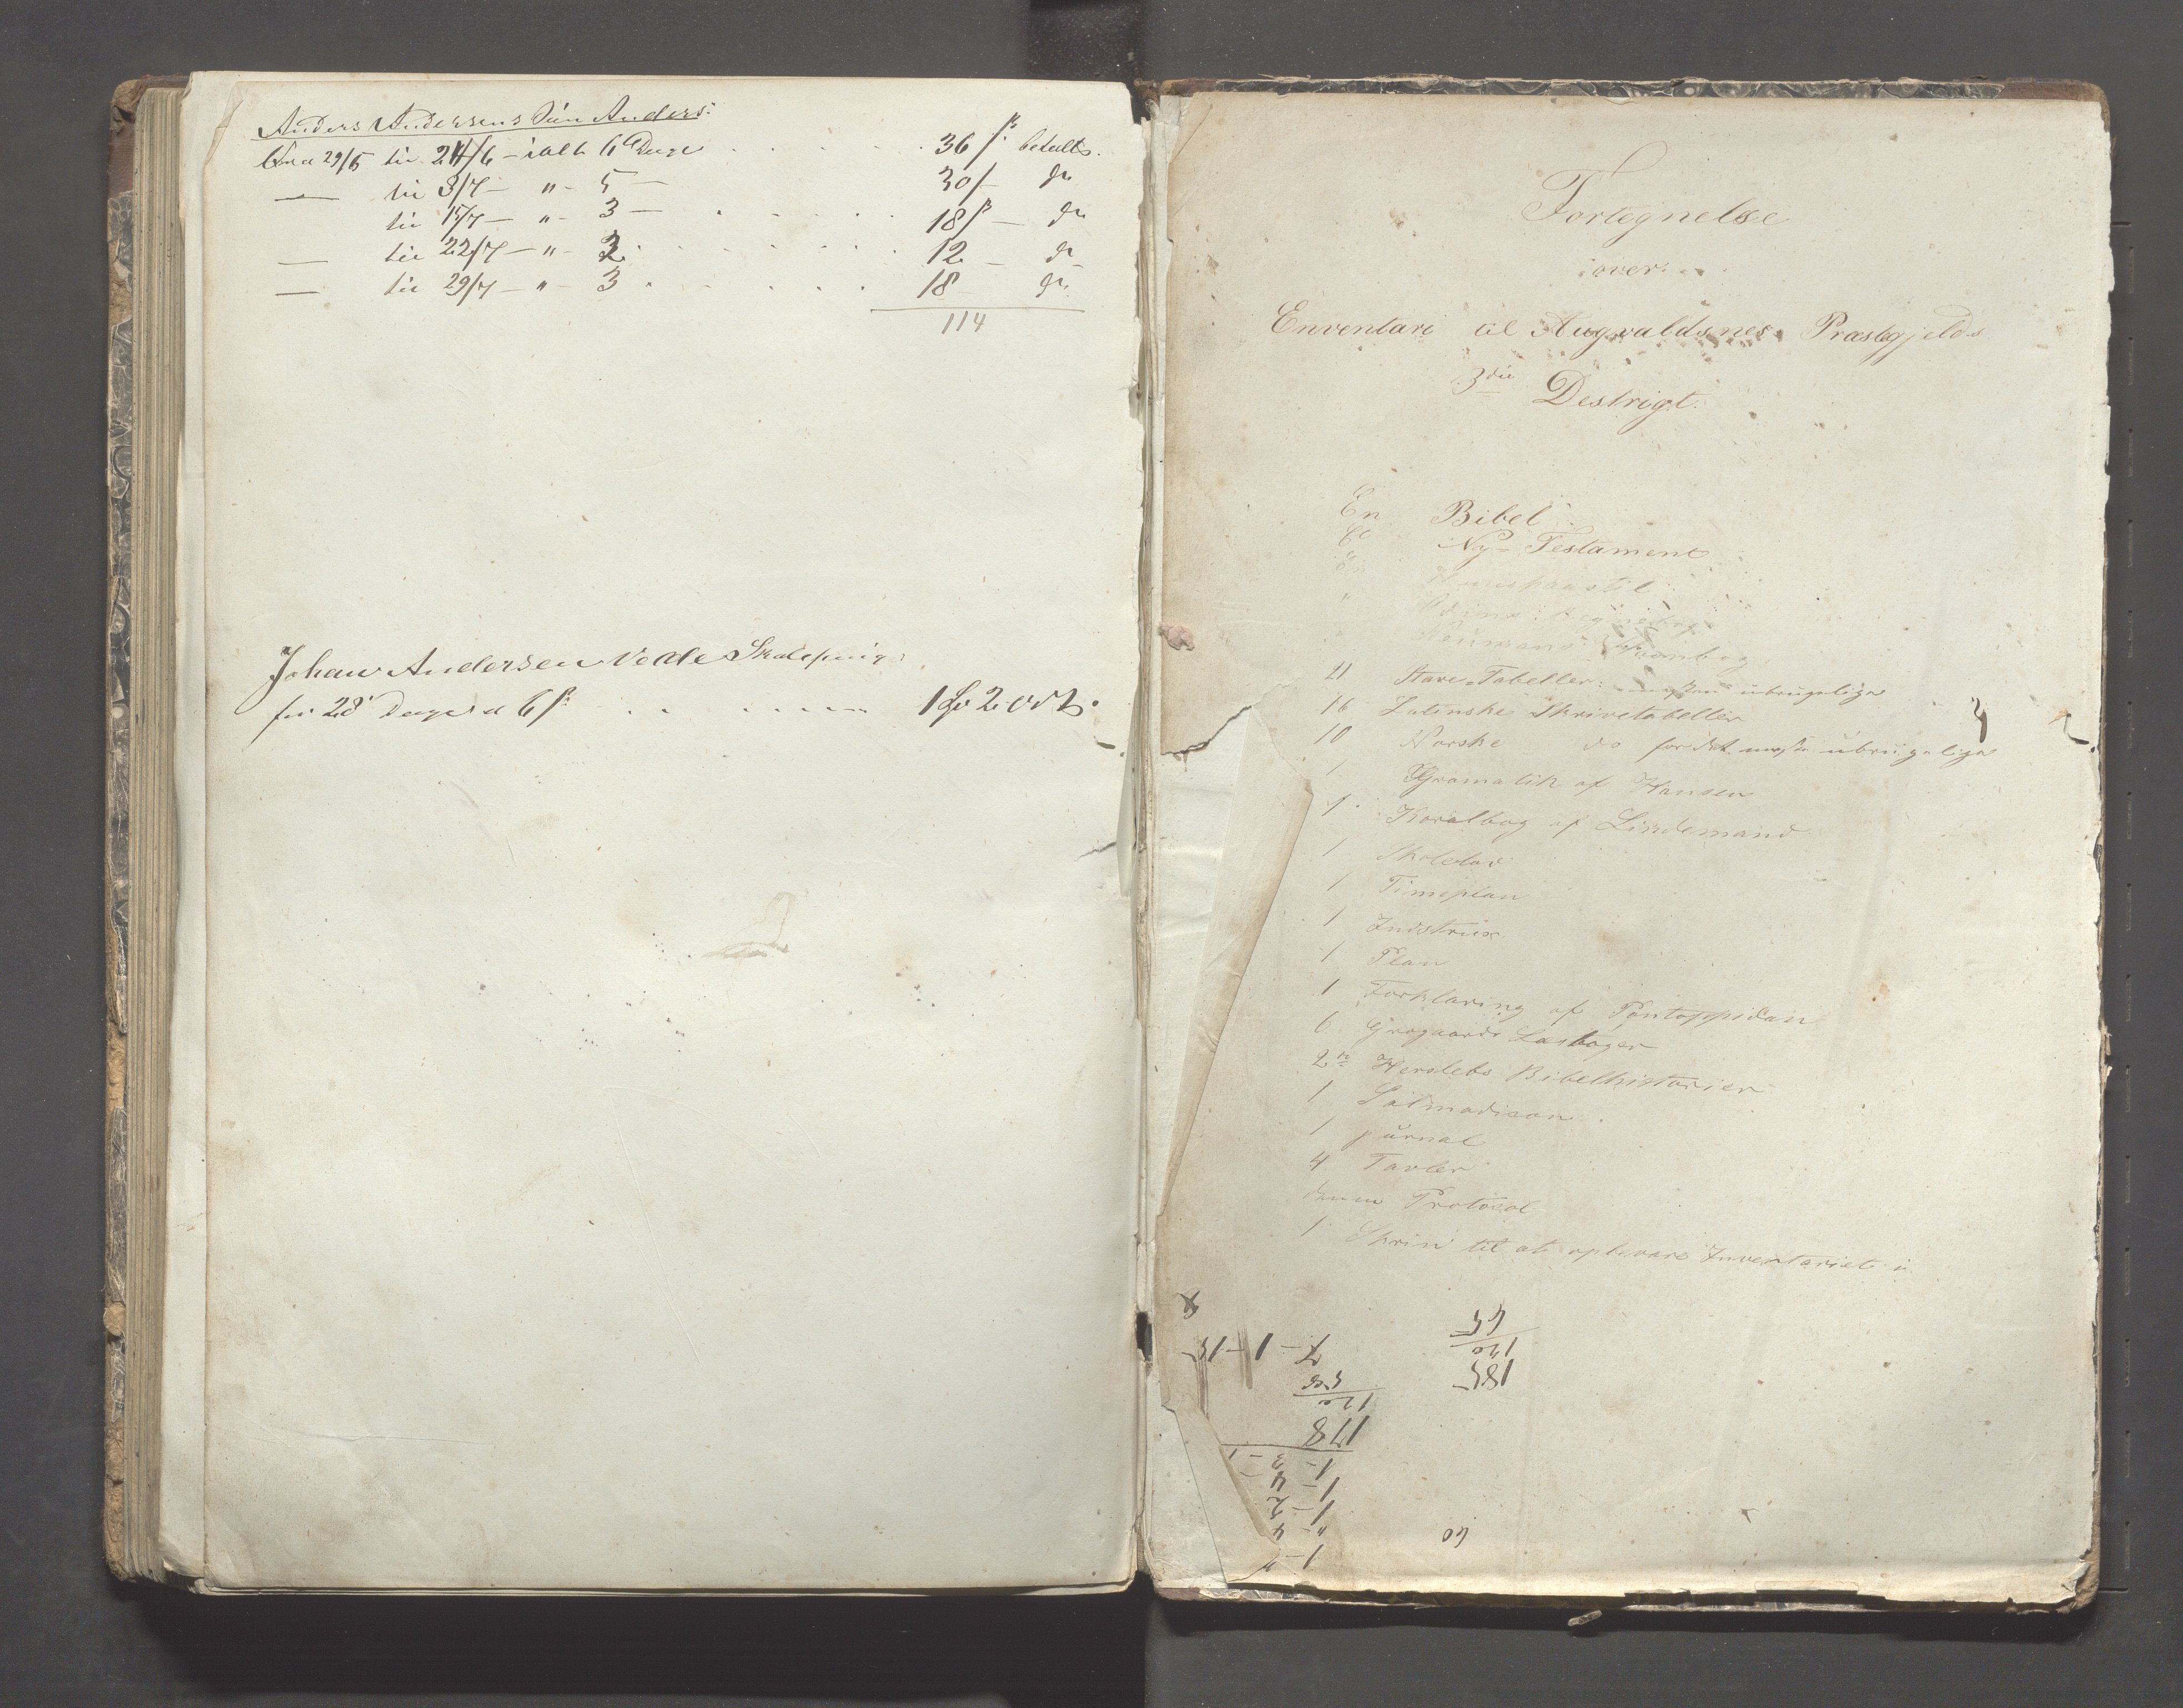 Anders Andersens Søn Anders:
Fra 29/5 til 24/6 – ialt 6 Dage . . . . . . 36 ß betalt.
— til 3/7 – " – 5 — 30/– do
til 15/7 – " – 3 — . . . . . 18 ß – do
— til 22/7 – " – 2 . . . . . . 12 – do
— til 29/7 – " – 3 . . . . . . 18 do
114
Johan Andersen Skolepenge
for 28 Dage a 6 ß . . . . . . 1 2 ort.
Fortegnelse
over
Enventare til Augvaldsnes Præstegjelds
3die Destrigt.
En Bibel
Et Ny- Testament
Huuspaastil
21 Stave-Tabeller: næsten ubrugelige
16 Latinske Skrivetabeller
10 Norske do for det meste ubrugelige
1 Gramatik af Hansen
1 Koralbog af Lindemand
1 Skolelov
1 Timeplan
1 Indstrux
1 Plan
1 Forklaring af Pontoppidan
6 Grøgaards Læsbøger
2 Herslebs Bibelhistorier
1 Salmodicon
1 jurnal
4 Tavler
denne Protocol
1 Skrin til at opbevare Inventariet i
185
120
65
178
120
60